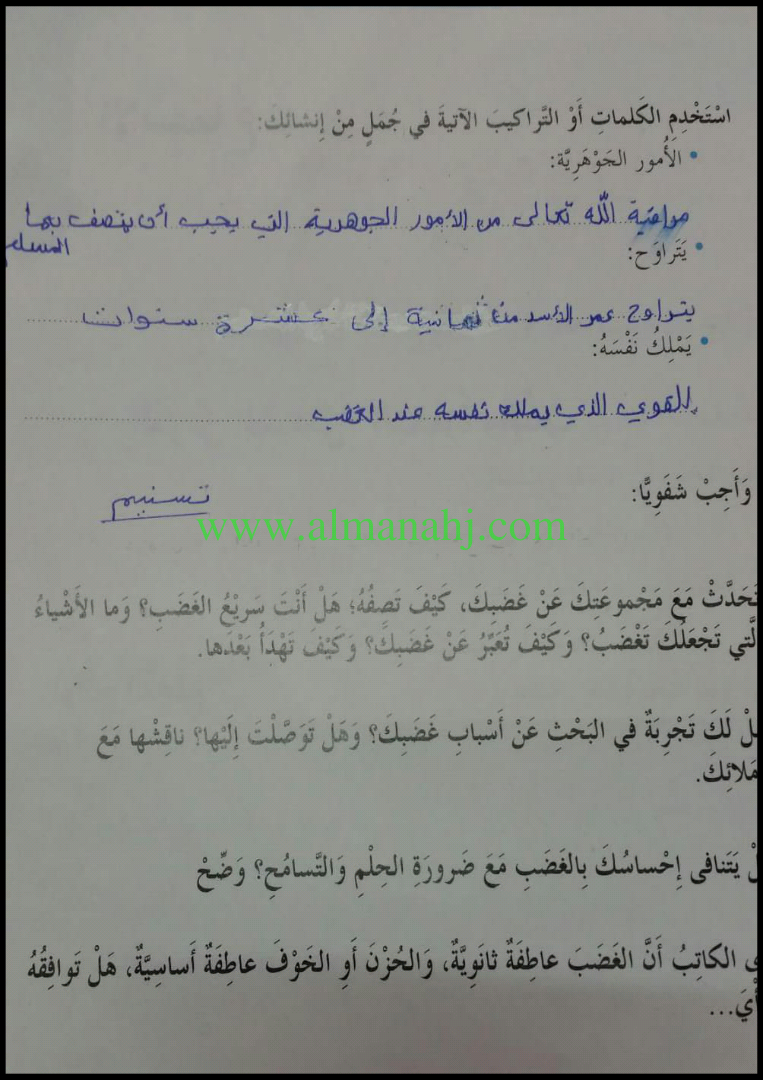 اسْتَخْدِمِ الكَلماتِ أَوْ التَّراكيبَ الآتيةَ في جُمَلٍ مِنْ إِنشائِكَ:
• الأُمور الجَوْهَرِيَّة:
مراقبة الله تعالى من الأمور الجوهرية التي يجب أن يتصف بها
المسلم
• يَتَراوَح:
يتراوح عمر الأسد من ثمانية إلى عشرة سنوات
• يَمْلِكُ نَفْسَهُ:
القوي الذي يملك نفسه عند الغضب
وَأَجِبْ شَفَوِيًّا:
تسنيم
www.almanahj.com
تَحَدَّثْ مَعَ مَجْموعَتِكَ عَنْ غَضَبِكَ، كَيْفَ تَصِفُهُ؛ هَلْ أَنْتَ سَريْعُ الغَضَبِ؟ وَما الأَشْياءُ
لَّتي تَجْعَلُكَ تَغْضَبُ؟ وَكَيْفَ تُعَبِّرُ عَنْ غَضَبِكَ؟ وَكَيْفَ تَهْدَأُ بَعْدَها.
لْ لَكَ تَجْرِبَةٌ في البَحْثِ عَنْ أَسْبابِ غَضَبِكَ؟ وَهَلْ تَوَصَّلْتَ إِلَيْها؟ ناقِشْها مَعَ
مَلائِكَ.
لْ يَتَنافى إِحْساسُكَ بِالغَضَبِ مَعَ ضَرورَةِ الحِلْمِ وَالتَّسامُحِ؟ وَضِّحْ
ى الكاتِبُ أَنَّ الغَضَبَ عاطِفَةٌ ثانَوِيَّةٌ، وَالحُزْنَ أَوِ الخَوْفَ عاطِفَةٌ أَساسِيَّةٌ، هَلْ تَوافِقُهُ
أْيَ...